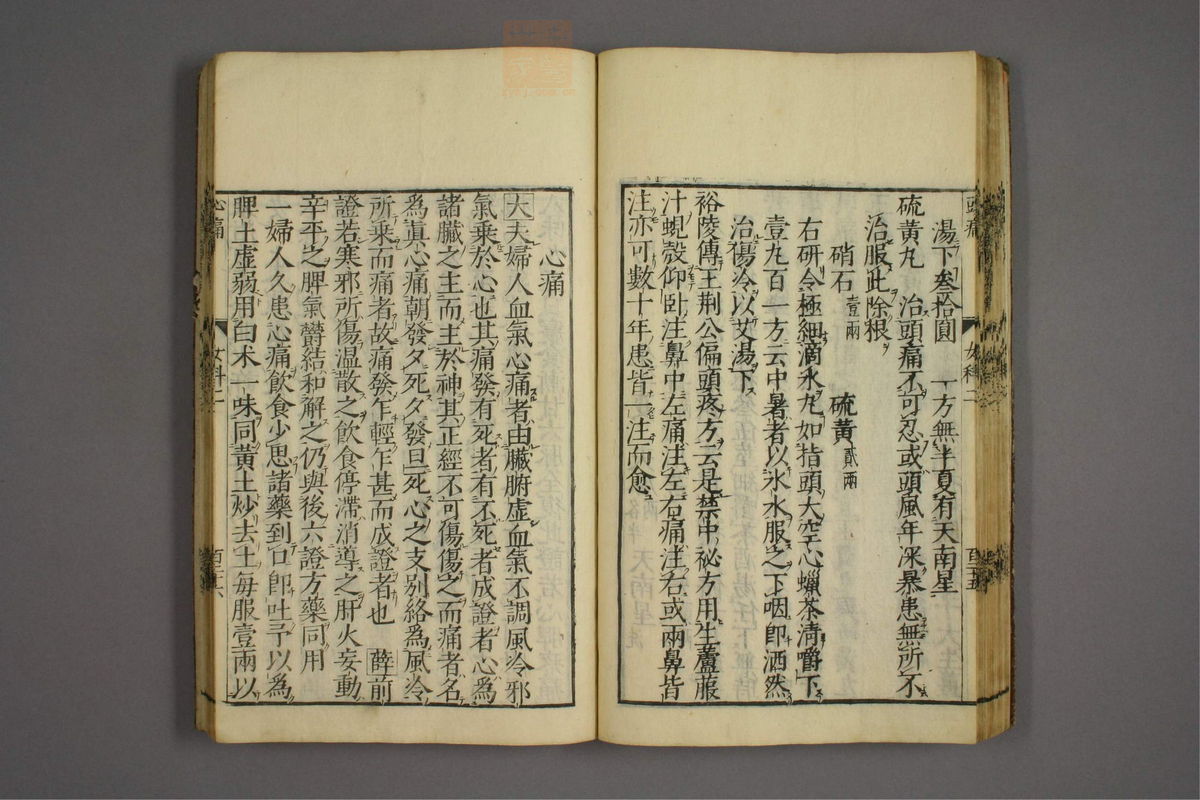 湯下叄拾圓 一方無半夏有天南星
硫黃丸 治頭痛不可忍或頭風年深暴患無所不
治服此除根
硝石壹兩 硫黃貳兩
右研令極細滴水丸如指頭大空心蠟茶清嚼下
壹丸百一方云中暑者以氷水服之下咽即洒然
治傷冷以艾湯下
裕陵傳王荆公偏頭疼方云是禁中祕方用生蘆菔
汁蜆殼仰卧注鼻中左痛注左右痛注右或兩鼻皆
注亦可數十年患皆一注而愈
頭痛 女科二
心痛
大夫婦人血氣心痛者由臟腑虛血氣不調風冷邪
氣乗於心也其痛發有死者有不死者成證者心爲
諸臟之主而主於神其正經不可傷傷之而痛者名
爲眞心痛朝發夕死夕發旦死心之支别絡爲風冷
所乗而痛者故痛發乍輕乍甚而成證者也 薛前
證若寒邪所傷温散之飲食停滯消導之肝火妄動
辛平之脾氣欝結和解之仍與後六證方藥同用
一婦人久患心痛飲食少思諸藥到口即吐予以爲
脾土虛弱用白术一味同黃土炒去土每服壹兩以
心痛 女科二